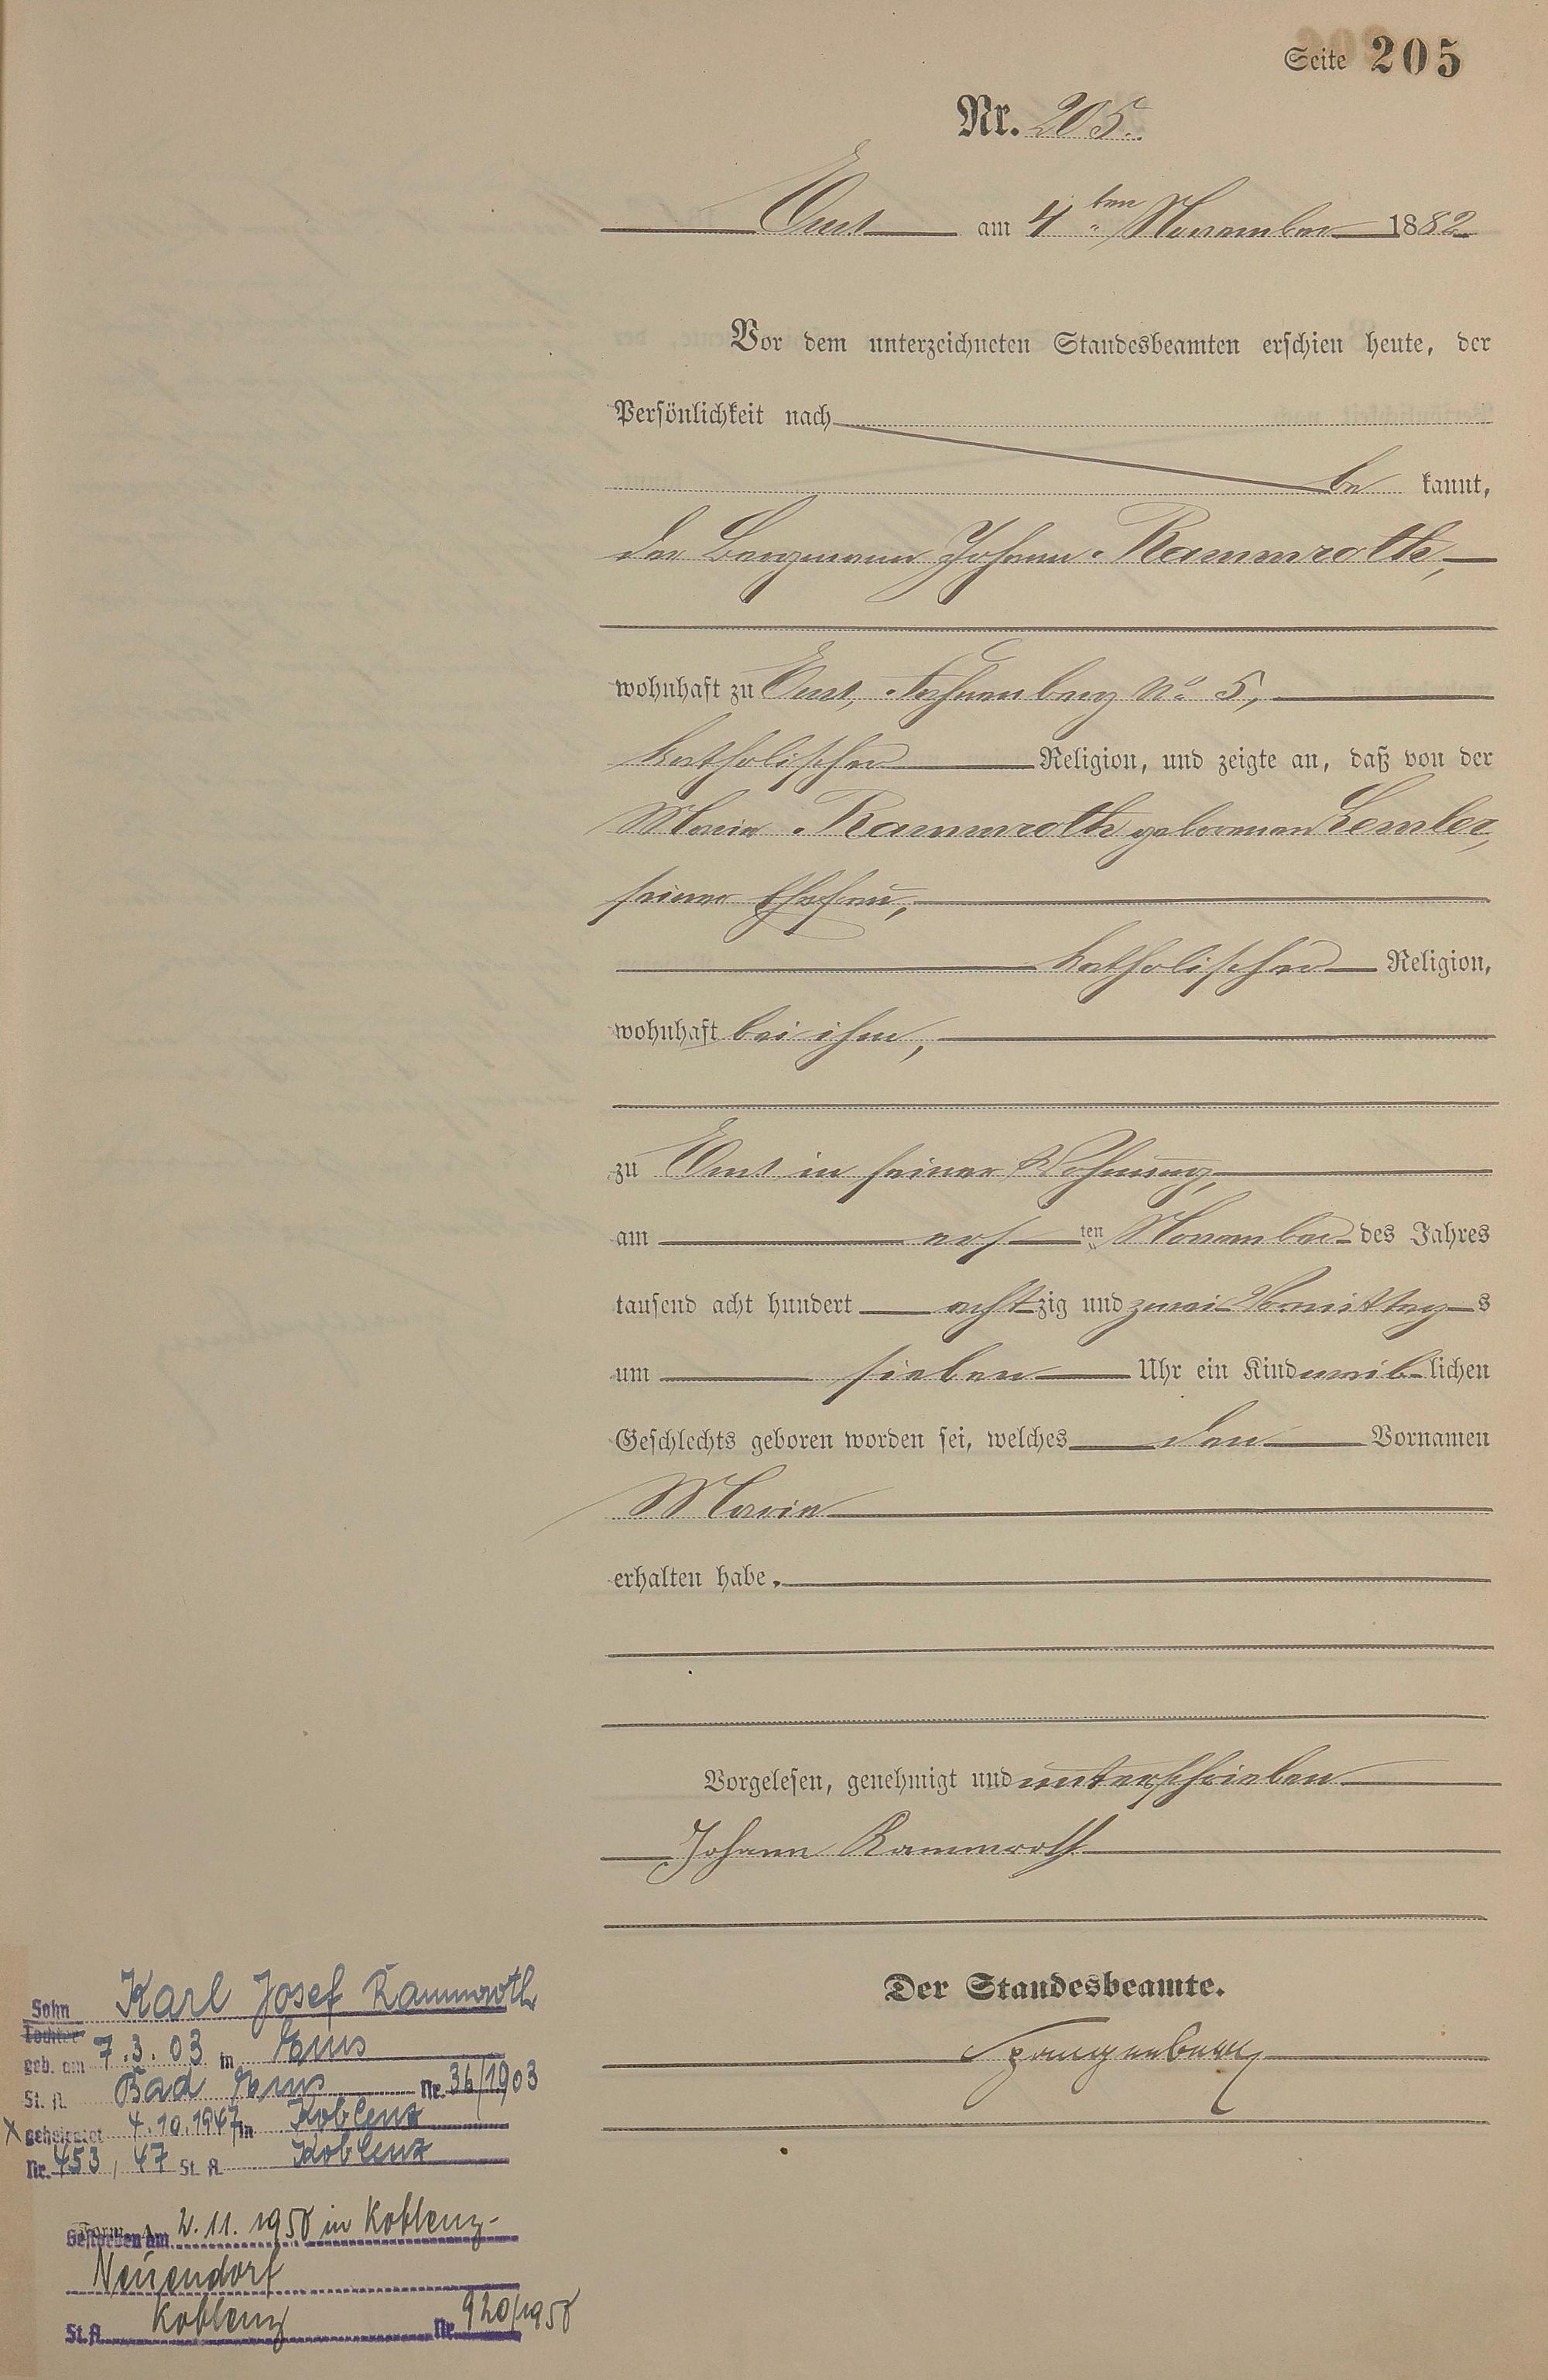 Seite 205
Nr. 205.
Ems am 4ten November 1882
Vor dem unterzeichneten Standesbeamten erschien heute, der
Persönlichkeit nach
be kannt,
der Bergmann Johann Rammroth,
wohnhaft zu Ems, No 5,
katholischer Religion, und zeigte an, daß von der
Maria Rammroth geborenen Lemler,
seiner Ehefrau,
katholischer Religion,
wohnhaft bei ihm,
zu Ems in seiner Wohnung,
am ers ten November des Jahres
tausend acht hundert acht zig und zwei Vormittag s
um sieben Uhr ein Kind weib lichen
Geschlechts geboren worden sei, welches den Vornamen
Maria
erhalten habe.
Vorgelesen, genehmigt und unterschrieben
Johann Rammroth
Der Standesbeamte.
Spangenberg
Sohn Karl Josef Rammroth
Tochter
geb. am 7.3.03 in Ems
St. A. Bad Ems Nr. 36/1903
X geheiratet 4.10.1947 in Koblenz
Nr. 453 / 47 St. A. Koblenz
Gestorben am 2.11.1958 in Koblenz-
Neuendorf
St. A. Koblenz Nr. 920/1958